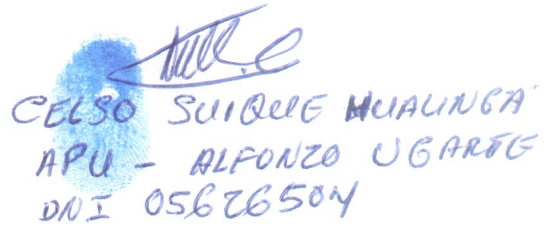 CELSO SUIQUE HUALINGA
APU - ALFONZO UGARTE
DNI 05626504